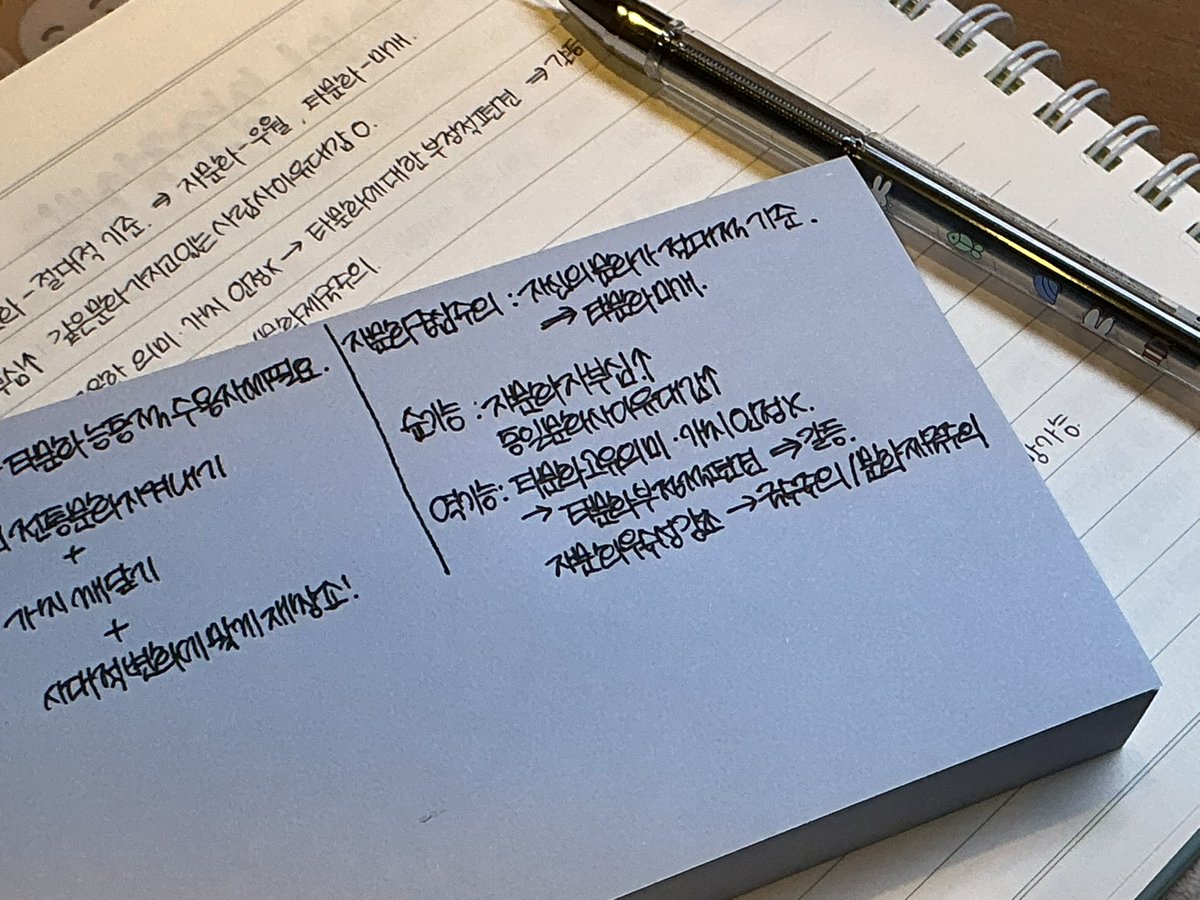 절대적 기준. ⇒ 자문화-우월, 타문화-미개.
같은문화가지고있는 사람사이유대감 O.
의미 가치 인정X → 타문화에 대한 부정적편견 ⇒ 갈등
타문화 능동적 수용자세 필요.
전통문화지켜내기
+
가치 깨닫기
+
시대적변화에 맞게 재창조!
자문화중심주의 : 자신의 문화가 절대적 기준.
⇒ 타문화 미개.
순기능 : 자문화자부심↑
동일문화사이유대감↑
역기능 : 타문화고유의미·가치 인정X.
→ 타문화부정적편견 ⇒ 갈등.
자문화우수성강조 → 국수주의/문화제국주의